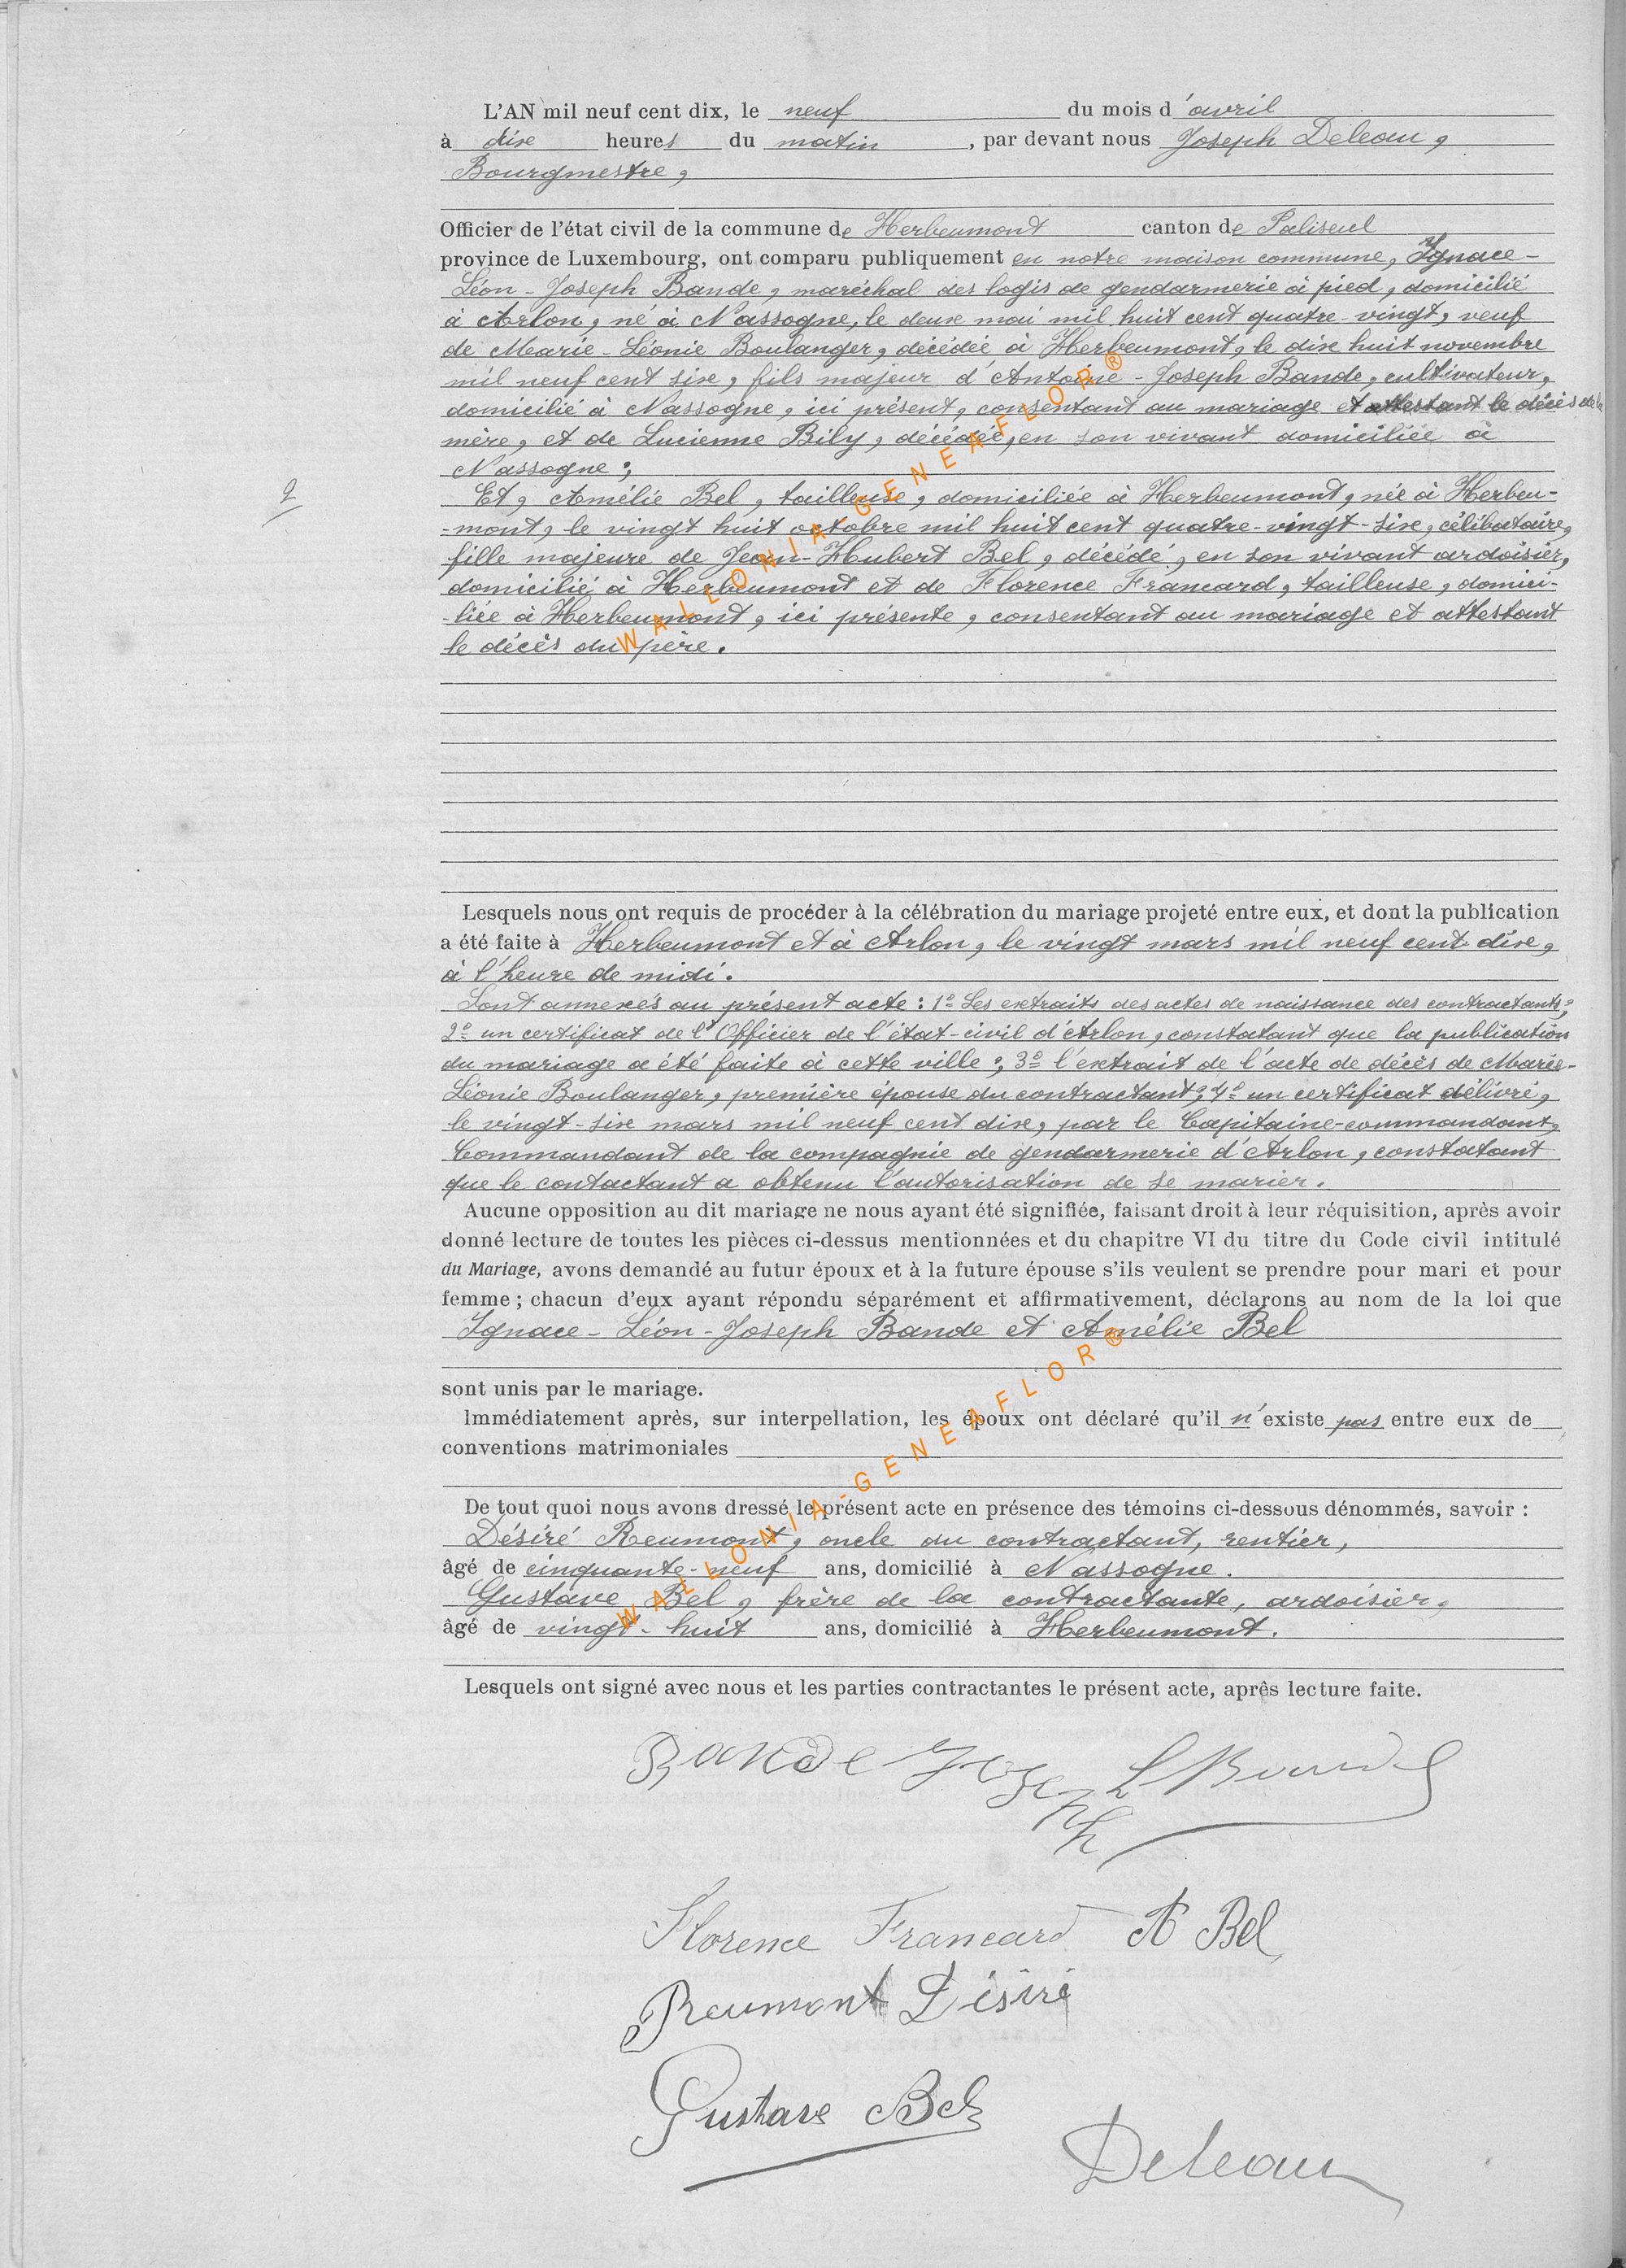 L'AN mil neuf cent dix, le neuf du mois d'avril
à dix heures du matin, par devant nous Joseph Deleau,
Bourgmestre,
Officier de l'état civil de la commune de Herbeumont canton de Paliseul
province de Luxembourg, ont comparu publiquement en notre maison commune, Ignace-
Léon-Joseph Bande, maréchal des logis de gendarmerie à pied, domicilié
à Arlon, né à Nassogne, le deux mai mil huit cent quatre-vingt, veuf
de Marie-Léonie Boulanger, décédée à Herbeumont, le dix huit novembre
mil neuf cent six, fils majeur d'Antoine-Joseph Bande, cultivateur,
domicilié à Nassogne, ici présent, consentant au mariage et attestant le décès de la
mère, et de Lucienne Bily, décédée, en son vivant domiciliée à
Nassogne;
2
Et, Amélie Bel, tailleuse, domiciliée à Herbeumont, née à Herbeu-
-mont, le vingt huit octobre mil huit cent quatre-vingt-six, célibataire,
fille majeure de Jean-Hubert Bel, décédé, en son vivant ardoisier,
domicilié à Herbeumont et de Florence Francard, tailleuse, domici-
-liée à Herbeumont, ici présente, consentant au mariage et attestant
le décès du père.
WALLONIA-GENEAFLOR®
Lesquels nous ont requis de procéder à la célébration du mariage projeté entre eux, et dont la publication
a été faite à Herbeumont et à Arlon, le vingt mars mil neuf cent dix,
à l'heure de midi.
Sont annexés au présent acte: 1º Les extraits des actes de naissance des contractants;
2º un certificat de l'Officier de l'état-civil d'Arlon, constatant que la publication
du mariage a été faite à cette ville; 3º l'extrait de l'acte de décès de Marie-
Léonie Boulanger, première épouse du contractant; 4º un certificat délivré,
le vingt-six mars mil neuf cent dix, par le Capitaine-commandant,
Commandant de la compagnie de gendarmerie d'Arlon, constatant
que le contactant a obtenu l'autorisation de se marier.
Aucune opposition au dit mariage ne nous ayant été signifiée, faisant droit à leur réquisition, après avoir
donné lecture de toutes les pièces ci-dessus mentionnées et du chapitre VI du titre du Code civil intitulé
du Mariage, avons demandé au futur époux et à la future épouse s'ils veulent se prendre pour mari et pour
femme; chacun d'eux ayant répondu séparément et affirmativement, déclarons au nom de la loi que
Ignace-Léon-Joseph Bande et Amélie Bel
sont unis par le mariage.
Immédiatement après, sur interpellation, les époux ont déclaré qu'il n'existe pas entre eux de
conventions matrimoniales
De tout quoi nous avons dressé le présent acte en présence des témoins ci-dessous dénommés, savoir :
Désiré Reumont, oncle du contractant, rentier,
âgé de cinquante-neuf ans, domicilié à Nassogne.
Gustave Bel, frère de la contractante, ardoisier,
âgé de vingt-huit ans, domicilié à Herbeumont.
WALLONIA-GENEAFLOR®
Lesquels ont signé avec nous et les parties contractantes le présent acte, après lecture faite.
Bande Joseph L Bande
Florence Francard A Bel
Reumont Désiré
Gustave Bel
Deleau